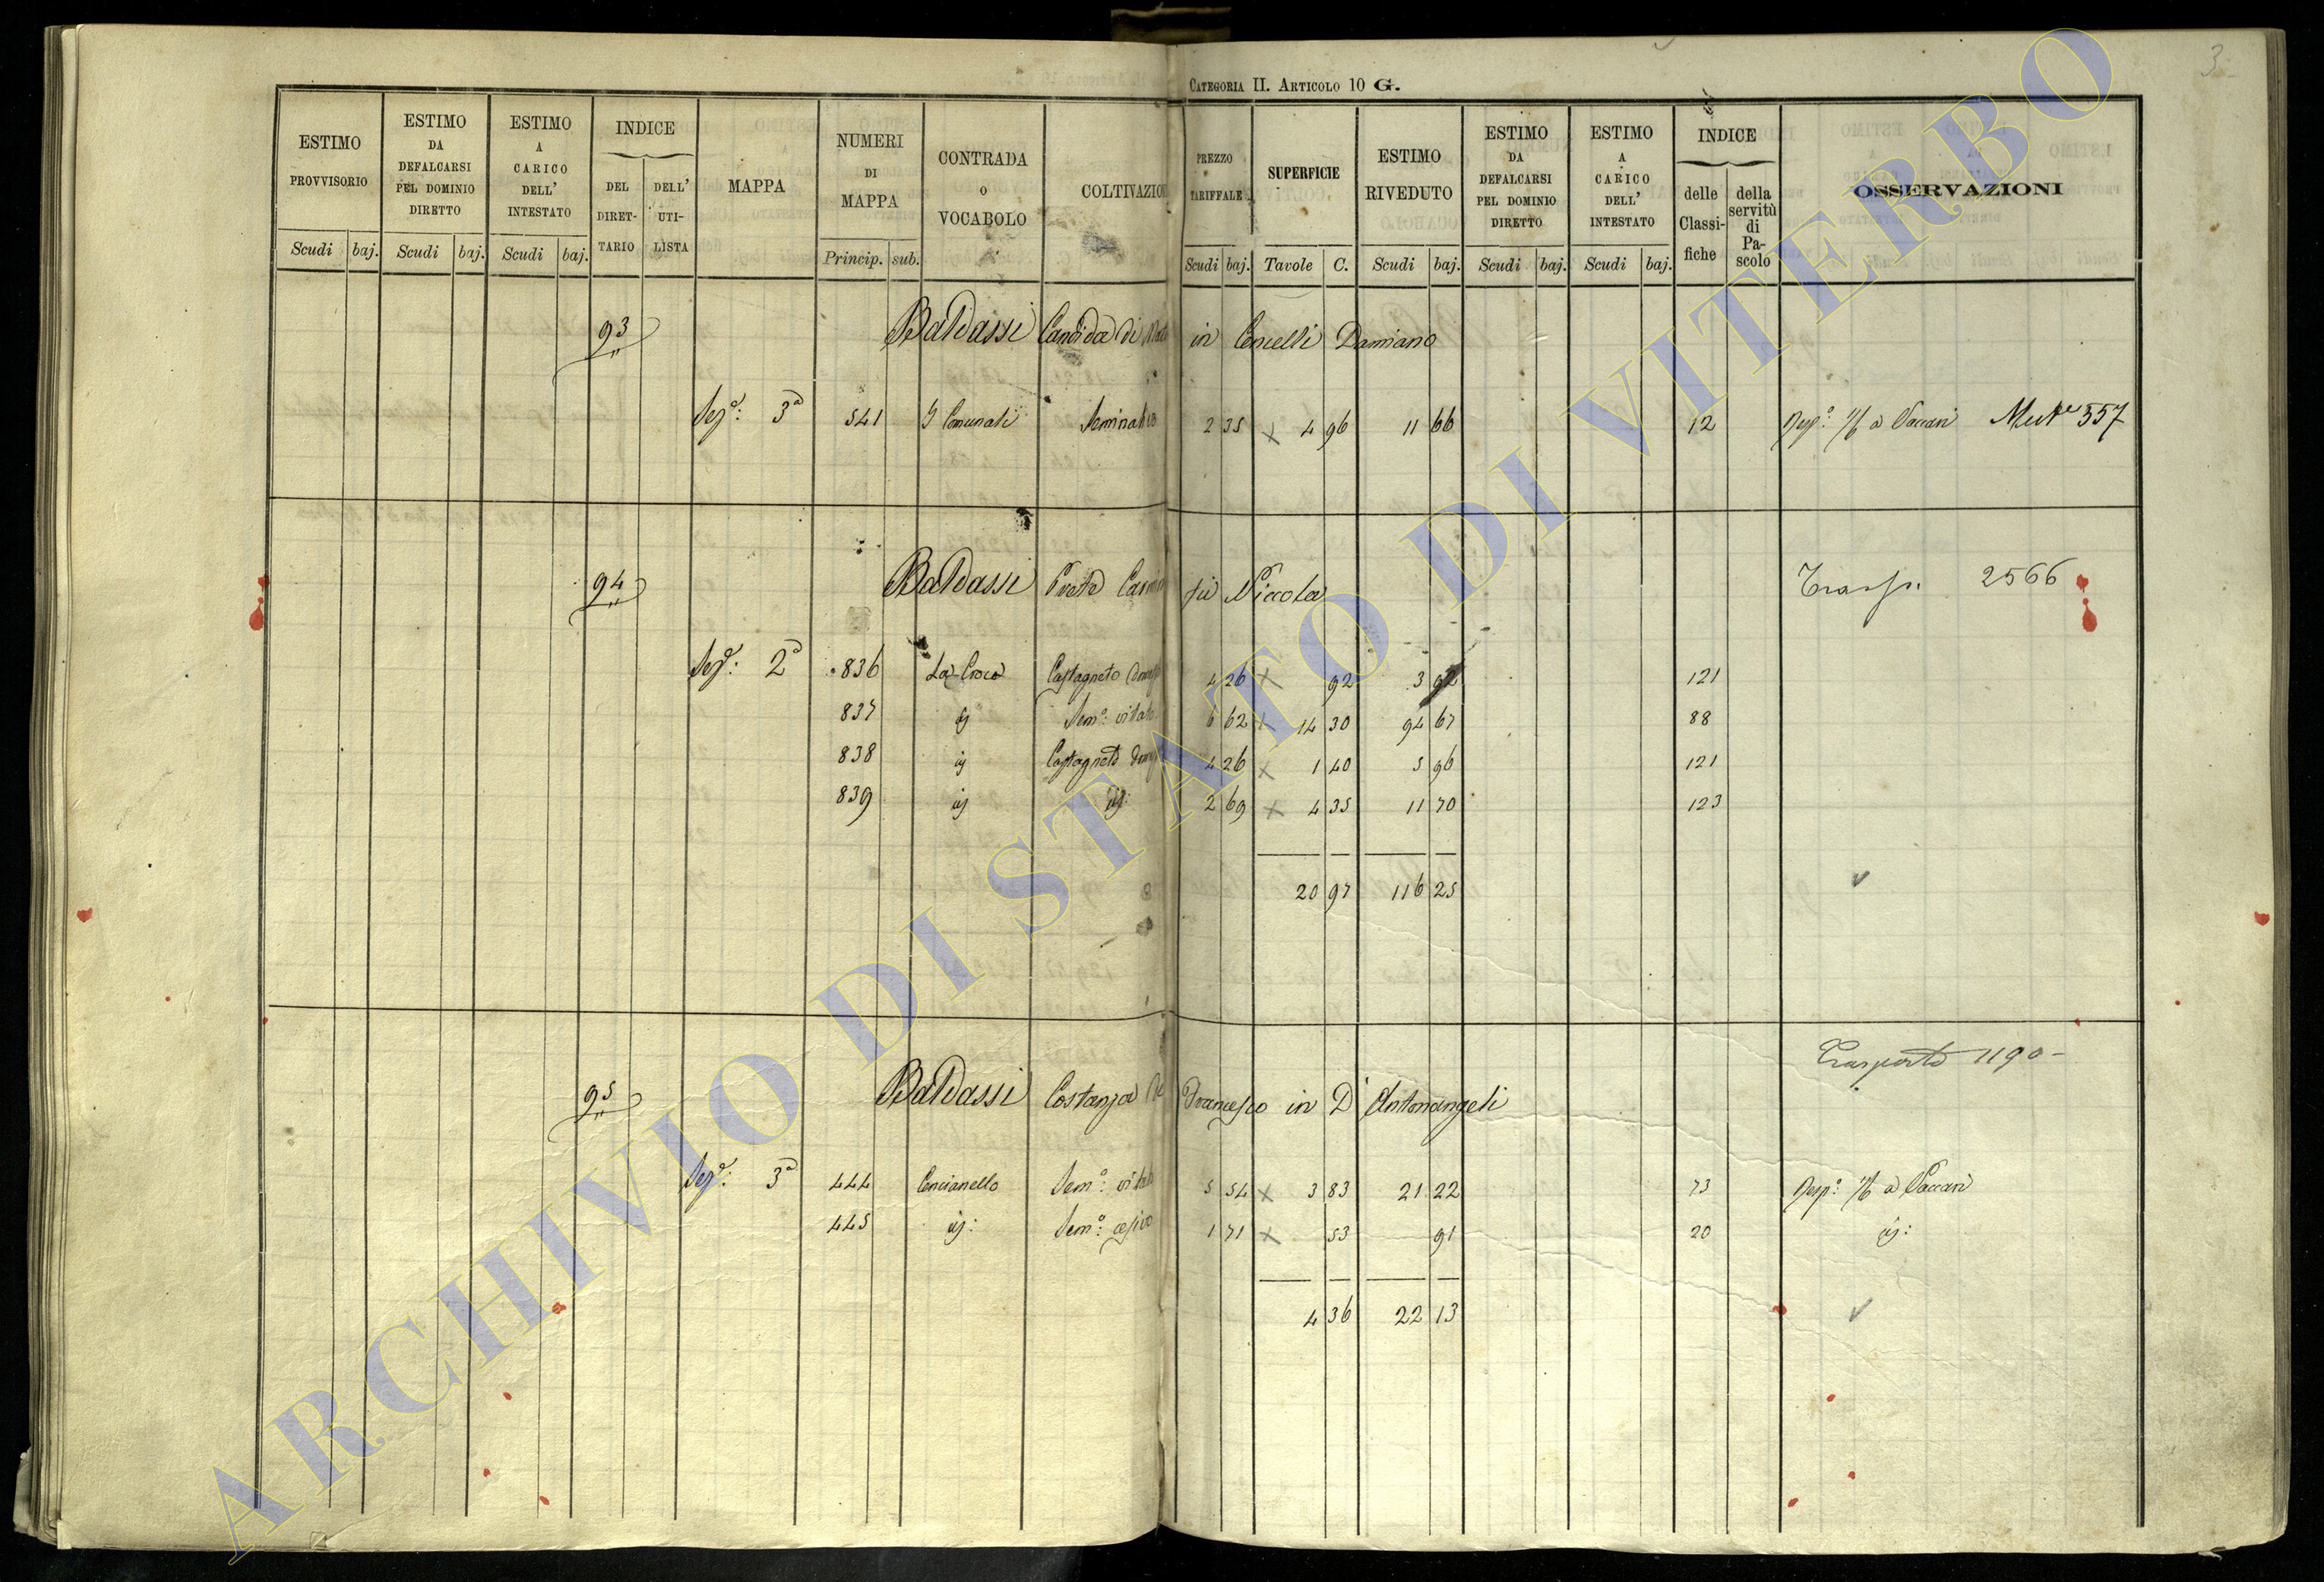 CATEGORIA II. ARTICOLO 10 G.
3
ESTIMO PROVVISORIO
ESTIMO DA DEFALCARSI PEL DOMINIO DIRETTO
ESTIMO A CARICO DELL' INTESTATO
INDICE
DEL DIRET-TARIO
DELL' UTI-LISTA
MAPPA
NUMERI DI MAPPA
CONTRADA O VOCABOLO
COLTIVAZION
PREZZO TARIFFALE
SUPERFICIE
ESTIMO RIVEDUTO
ESTIMO DA DEFALCARSI PEL DOMINIO DIRETTO
ESTIMO A CARICO DELL' INTESTATO
INDICE
delle Classi-fiche
della servitù di Pa-scolo
OSSERVAZIONI
Scudi baj. Scudi baj. Scudi baj. Princip. sub. Scudi baj. Tavole C. Scudi baj. Scudi baj. Scudi baj.
93 Baldassi Candida di in Cencelli Damiano
Sez.e: 3a 541 I Comunali Seminativo 2 35 x 4 96 11 66 12 Resp.a 1/6 a Vaccari Mut.e 557
94 Baldassi Prete fu Niccola Trasp. 2566
Sez.e: 2a 836 La Croce Castagneto 4 26 x 92 3 92 121
837 Sem.o: vitato 6 62 x 14 30 94 67 88
838 Castagneto 4 26 x 1 40 5 96 121
839 2 69 x 4 35 11 70 123
20 97 116 25
95 Baldassi Costanza Francesco in D'Antonangeli Trasporto 1190
Sez.e: 3a 444 Cencianello Sem.o: vitato 5 54 x 3 83 21 22 73 Resp.a 1/6 a Vaccari
445 Sem.o: 1 71 x 53 91 20
4 36 22 13
ARCHIVIO DI STATO DI VITERBO